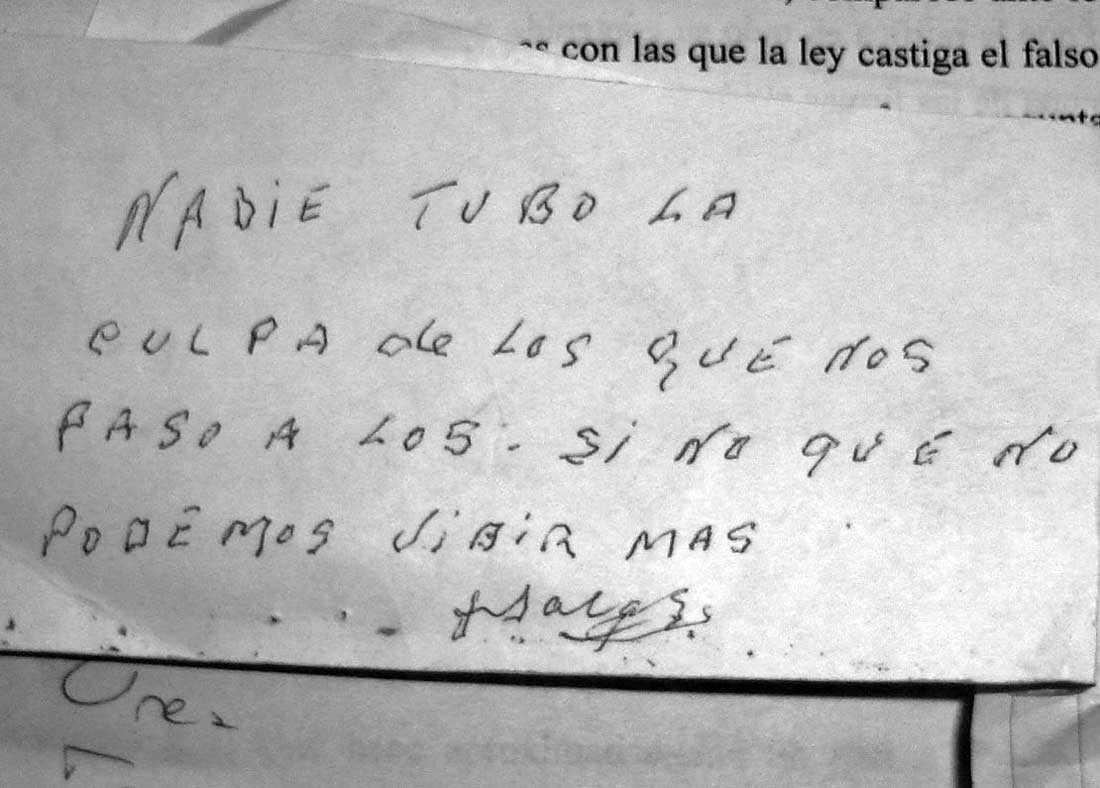 con las que la ley castiga el falso
NADiE TUBO LA
CULPA de LOS QUE NOS
PASO A LOS. Si NO QUE NO
PODEMOS ViBiR MAS